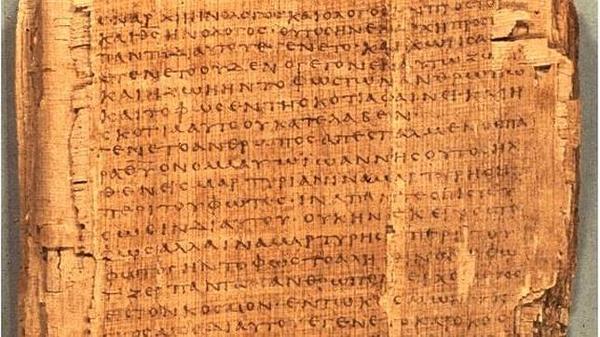 ΕΝ ΑΡΧΗ ΗΝ Ο ΛΟΓΟϹ ΚΑΙ Ο ΛΟΓΟϹ ΗΝ ΠΡΟϹ ΤΟ
ΚΑΙ ΘϹ ΗΝ Ο ΛΟΓΟϹ · ΟΥΤΟϹ ΗΝ ΕΝ ΑΡΧΗ ΠΡΟϹ
ΠΑΝΤΑ ΔΙ ΑΥΤΟΥ ΕΓΕΝΕΤΟ · ΚΑΙ ΧΩΡΙϹ Α
ΕΓΕΝΕΤΟ ΟΥΔΕΝ Ο ΓΕΓΟΝΕΝ ΕΝ ΑΥΤΩ ΖΩΗ
ΚΑΙ Η ΖΩΗ ΗΝ ΤΟ ΦΩϹ ΤΩΝ ΑΝΘΡΩΠΩ
ΚΑΙ ΤΟ ΦΩϹ ΕΝ ΤΗ ϹΚΟΤΙΑ ΦΑΙΝΕΙ ΚΑΙ Η
ϹΚΟΤΙΑ ΑΥΤΟ ΟΥ ΚΑΤΕΛΑΒΕΝ
ΕΓΕΝΕΤΟ ΑΝΘΡΩΠΟϹ ΑΠΕϹΤΑΛΜΕΝΟϹ ΠΑ
ΡΑ ΘΥ ΟΝΟΜΑ ΑΥΤΩ ΙΩΑΝΝΗϹ ΟΥΤΟϹ ΗΛ
ΘΕΝ ΕΙϹ ΜΑΡΤΥΡΙΑΝ ΙΝΑ ΜΑΡΤΥΡΗϹΗ
ΠΕΡΙ ΤΟΥ ΦΩΤΟϹ · ΙΝΑ ΠΑΝΤΕϹ ΠΙϹΤΕΥ
ϹΩϹΙΝ ΔΙ ΑΥΤΟΥ · ΟΥΚ ΗΝ ΕΚΕΙΝΟϹ ΤΟ
ΦΩϹ ΑΛΛΑ ΙΝΑ ΜΑΡΤΥΡΗϹΗ ΠΕΡΙ ΤΟΥ
ΦΩΤΟϹ ΗΝ ΤΟ ΦΩϹ ΤΟ ΑΛΗΘΙΝΟΝ Ο ΦΩ
ΤΙΖΕΙ ΠΑΝΤΑ ΑΝΘΡΩΠΟΝ ΕΡΧΟΜΕΝΟΝ
ΕΙϹ ΤΟΝ ΚΟϹΜΟΝ · ΕΝ ΤΩ ΚΟϹΜΩ ΗΝ
ΔΙ ΑΥΤΟΥ ΕΓΕΝΕΤΟ Ο ΚΟϹΜΟϹ